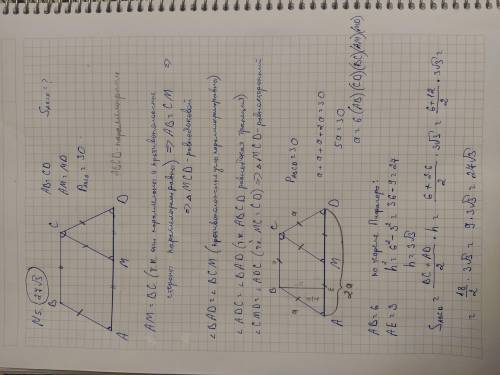 N5. (27√3)
B C
A M D
AB = CD
AM = MD
P_ABCD = 30
S_ABCD = ?
ABCD-параллелограмм
AM = BC (т.к. они параллельны и противоположные
стороны параллелограмма равны) ⇒ AB = CM ⇒
⇒ △MCD - равнобедренный
∠BAD = ∠BCM (противоположные углы параллелограмма равны)
∠ADC = ∠BAD (т.к. ABCD равнобокая трапеция)
∠CMD = ∠ADC (т.к. MC = CD) ⇒ △MCD - равносторонний
B a C
a a
A a/2 E M D
2a
P_ABCD = 30
a + a + a + 2a = 30
5a = 30
a = 6 (AB)(CD)(BC)(AM)(MD)
AB = 6 по теореме Пифагора:
AE = 3 h² = 6² - 3² = 36 - 9 = 27
h = 3√3
S_ABCD = BC + AD / 2 · h = 6 + 2·6 / 2 · 3√3 = 6 + 12 / 2 · 3√3 =
= 18 / 2 · 3√3 = 9 · 3√3 = 27√3